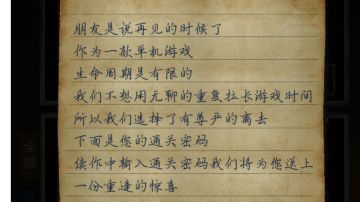 朋友是说再见的时候了
作为一款单机游戏
生命周期是有限的
我们不想用无聊的重复拉长游戏时间
所以我们选择了有尊严的离去
下面是您的通关密码
续作中输入通关密码我们将为您送上
一份重逢的惊喜
全部